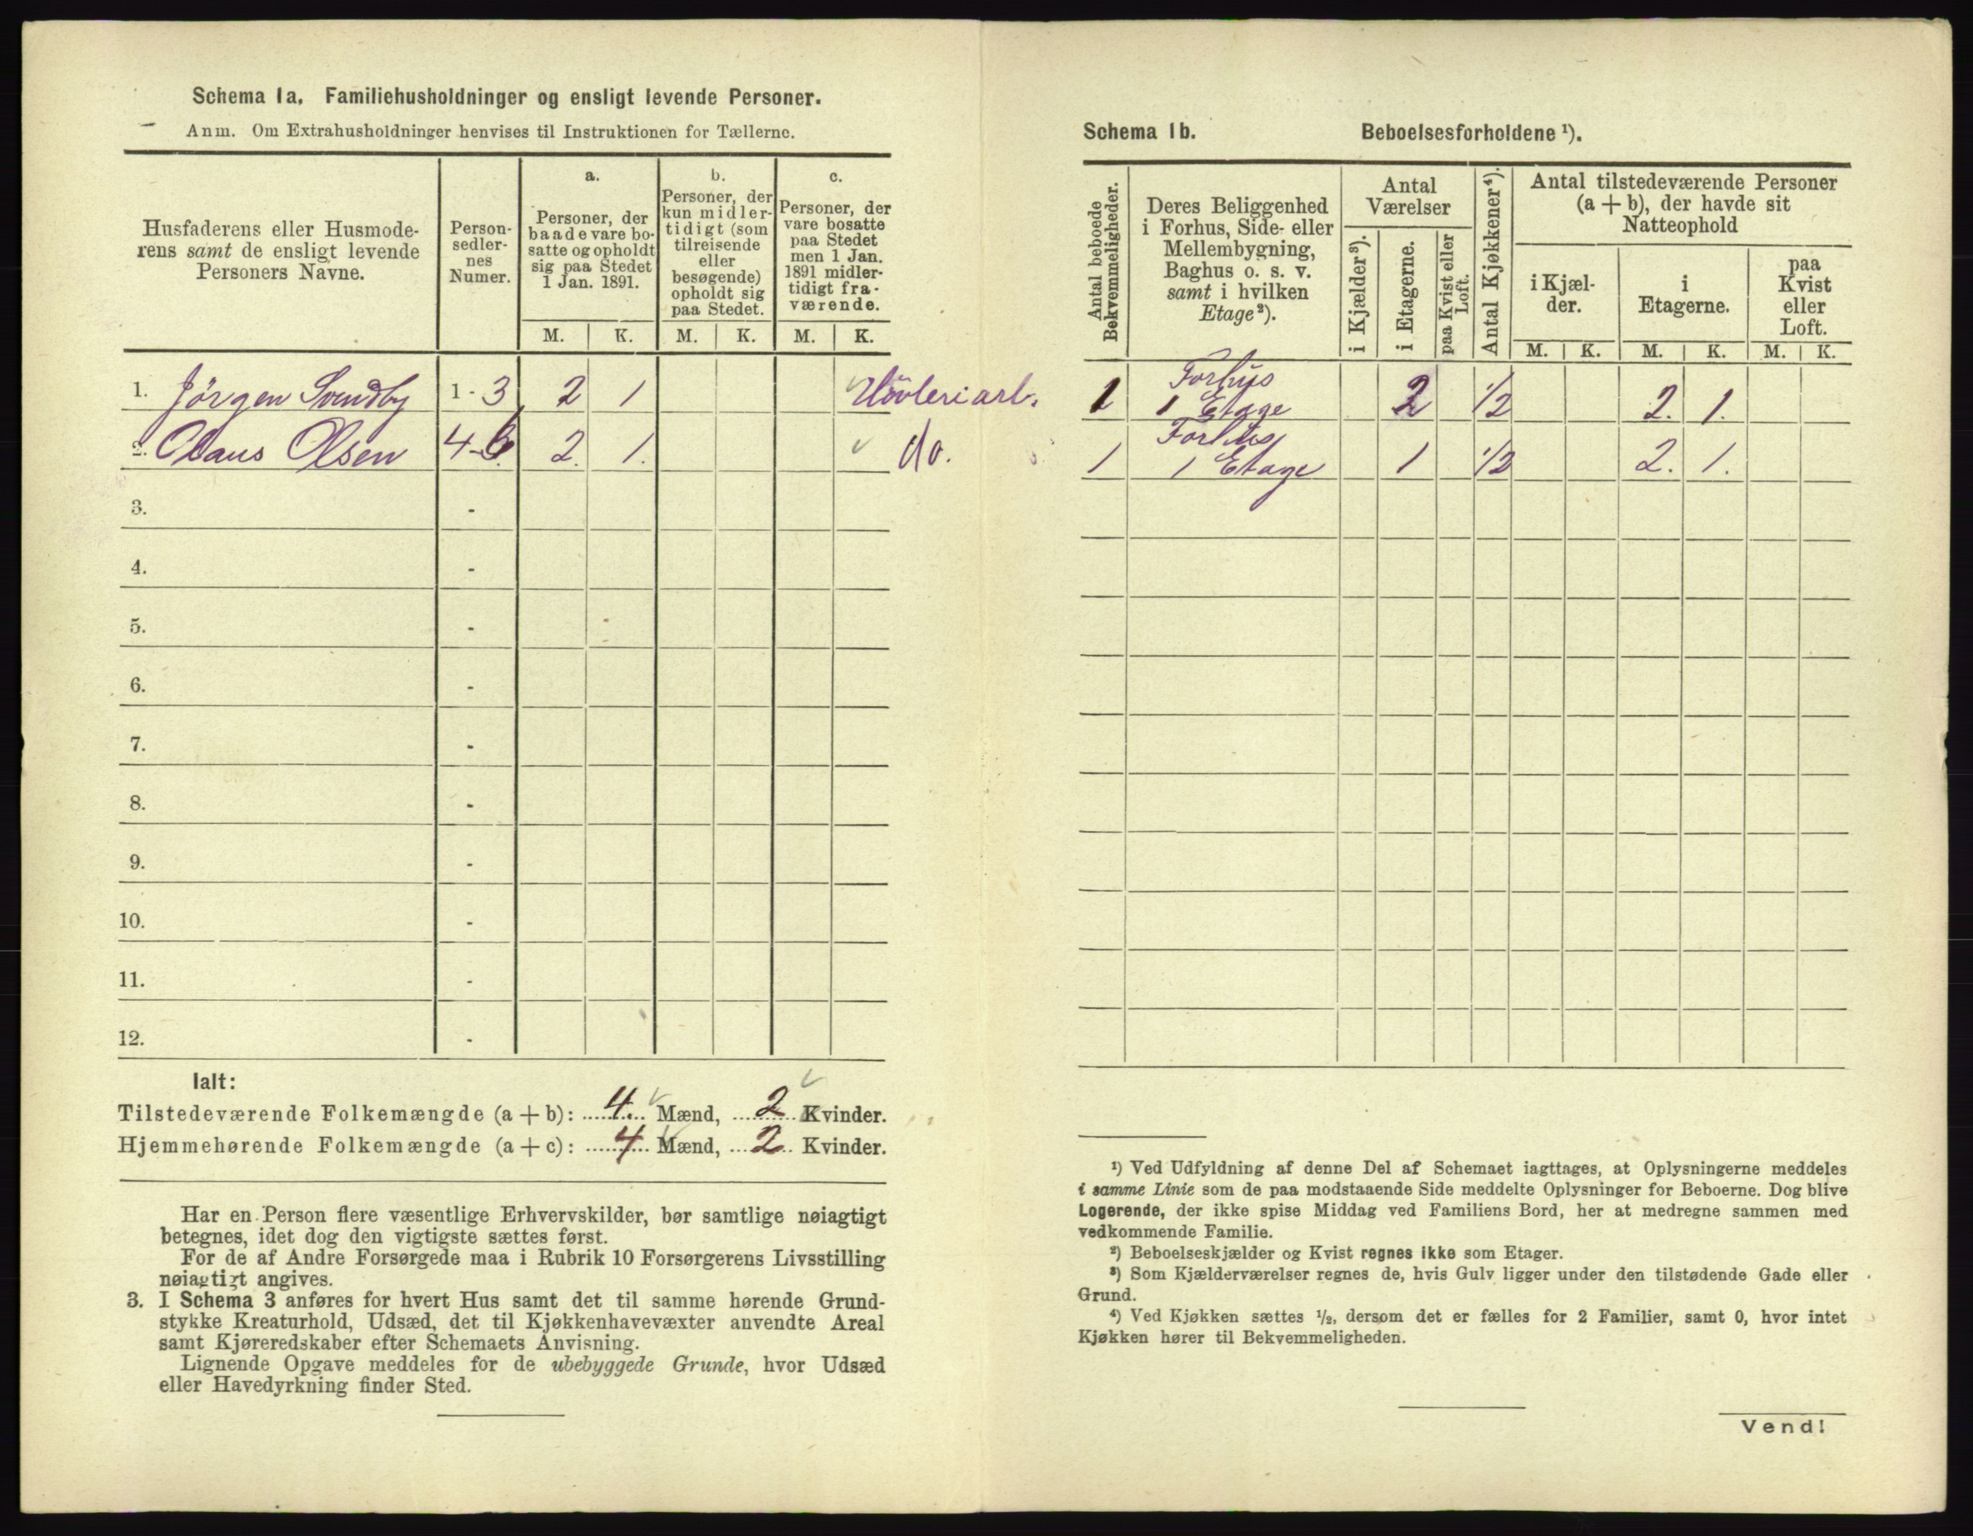 Schema 1a. Familiehusholdninger og ensligt levende Personer.
Anm. Om Extrahusholdninger henvises til Instruktionen for Tællerne.
Husfaderens eller Husmode-
rens samt de ensligt levende
Personers Navne.
Person-
sedler-
nes
Numer.
a.
Personer, der
baade vare bo-
satte og opholdt
sig paa Stedet
1 Jan. 1891.
b.
Personer, der
kun midler-
tidigt (som
tilreisende
eller
besøgende)
opholdt sig
paa Stedet.
c.
Personer, der
vare bosatte
paa Stedet
men 1 Jan.
1891 midler-
tidigt fra-
værende.
M. K. M. K. M. K.
1. Jörgen Svendby 1 - 3 2 1 Hövleriarb.
2. Claus Olsen 4-6. 2. 1. do.
3. -
4. -
5. -
6. -
7. -
8. -
9. -
10. -
11. -
12. -
Ialt:
Tilstedeværende Folkemængde (a + b): 4. Mænd, 2 Kvinder.
Hjemmehørende Folkemængde (a + c): 4 Mænd, 2 Kvinder.
Har en Person flere væsentlige Erhvervskilder, bør samtlige nøiagtigt
betegnes, idet dog den vigtigste sættes først.
For de af Andre Forsørgede maa i Rubrik 10 Forsørgerens Livsstilling
nøiagtigt angives.
3. I Schema 3 anføres for hvert Hus samt det til samme hørende Grund-
stykke Kreaturhold, Udsæd, det til Kjøkkenhavevæxter anvendte Areal
samt Kjøreredskaber efter Schemaets Anvisning.
Lignende Opgave meddeles for de ubebyggede Grunde, hvor Udsæd
eller Havedyrkning finder Sted.
Schema 1b. Beboelsesforholdene ¹).
Antal beboede
Bekvemmeligheder.
Deres Beliggenhed
i Forhus, Side- eller
Mellembygning,
Baghus o. s. v.
samt i hvilken
Etage²).
Antal
Værelser
i Kjælder³).
i Etagerne.
paa Kvist eller
Loft.
Antal Kjøkkener⁴).
Antal tilstedeværende Personer
(a + b), der havde sit
Natteophold
i Kjæl-
der.
i
Etagerne.
paa
Kvist
eller
Loft.
M. K. M. K. M. K.
1 Forhus
1 Etage 2 1/2 2. 1.
Forhus
1 1 Etage 1 1/2 2. 1.
¹) Ved Udfyldning af denne Del af Schemaet iagttages, at Oplysningerne meddeles
i samme Linie som de paa modstaaende Side meddelte Oplysninger for Beboerne. Dog blive
Logerende, der ikke spise Middag ved Familiens Bord, her at medregne sammen med
vedkommende Familie.
²) Beboelseskjælder og Kvist regnes ikke som Etager.
³) Som Kjælderværelser regnes de, hvis Gulv ligger under den tilstødende Gade eller
Grund.
⁴) Ved Kjøkken sættes ½, dersom det er fælles for 2 Familier, samt 0, hvor intet
Kjøkken hører til Bekvemmeligheden.
Vend!